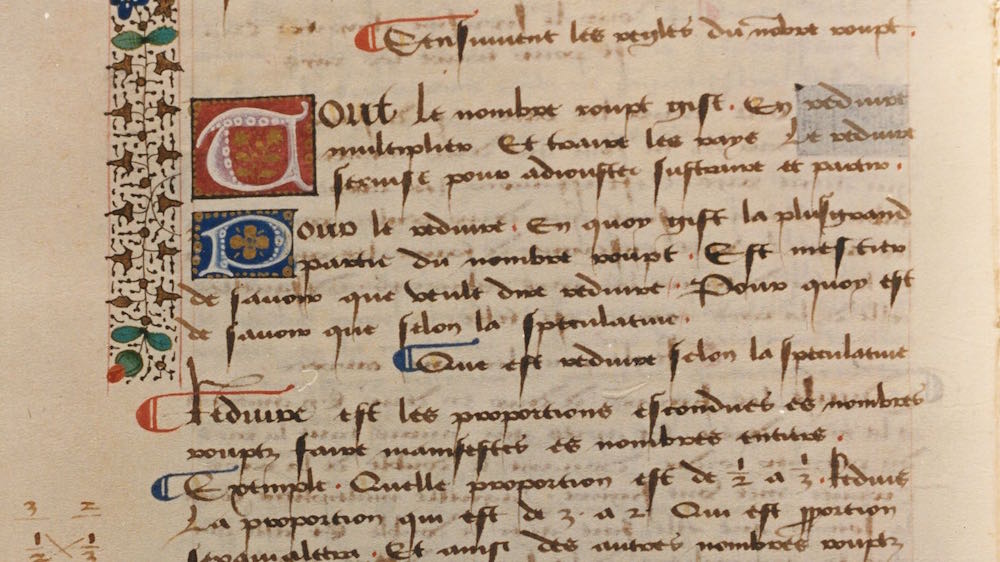 Sensuivent les reigles du nōbre roupt.
Tout le nombre roupt gist. En reduire
multiplier Et traire les rays Le reduire
sexuise pour adiouster sustraire et partir.
Pour le reduire. En quoy gist la plusgrand
partie du nombre roupt. Est mestier
de sauoir que veult dire reduire. Pour quoy est
de sauoir que selon la speculatiue.
Que est reduire selon la speculatiue
Reduire est les proportions escondues es nombres
rouptz faire manifestes es nombres entiers.
Exemple. Quelle proportion est de ½ a ⅓. Reduis
La proportion qui est de 3. a 2. Qui est ꝓportion
3 2
½ ⅓
sexquialtera. Et ainsi des autres nombres rouptz